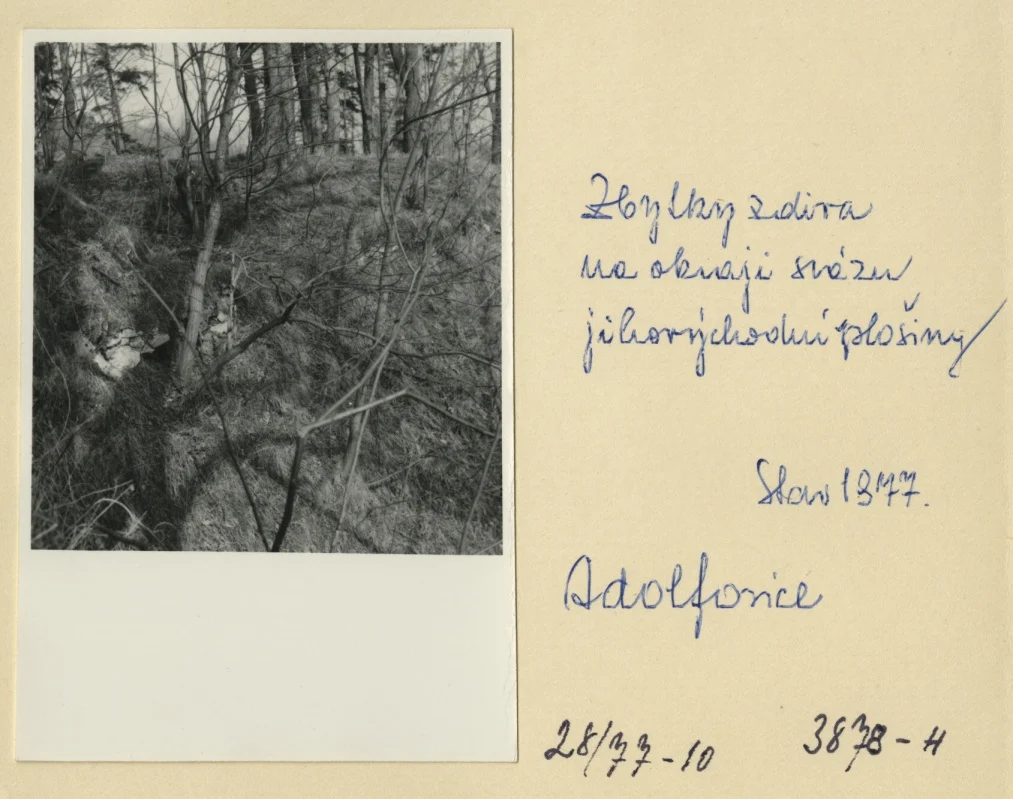 Zbytky zdiva
na okraji svázu
jihovýchodní plošiny
Stav 1977.
Adolfovice
28/77-10
3878-H